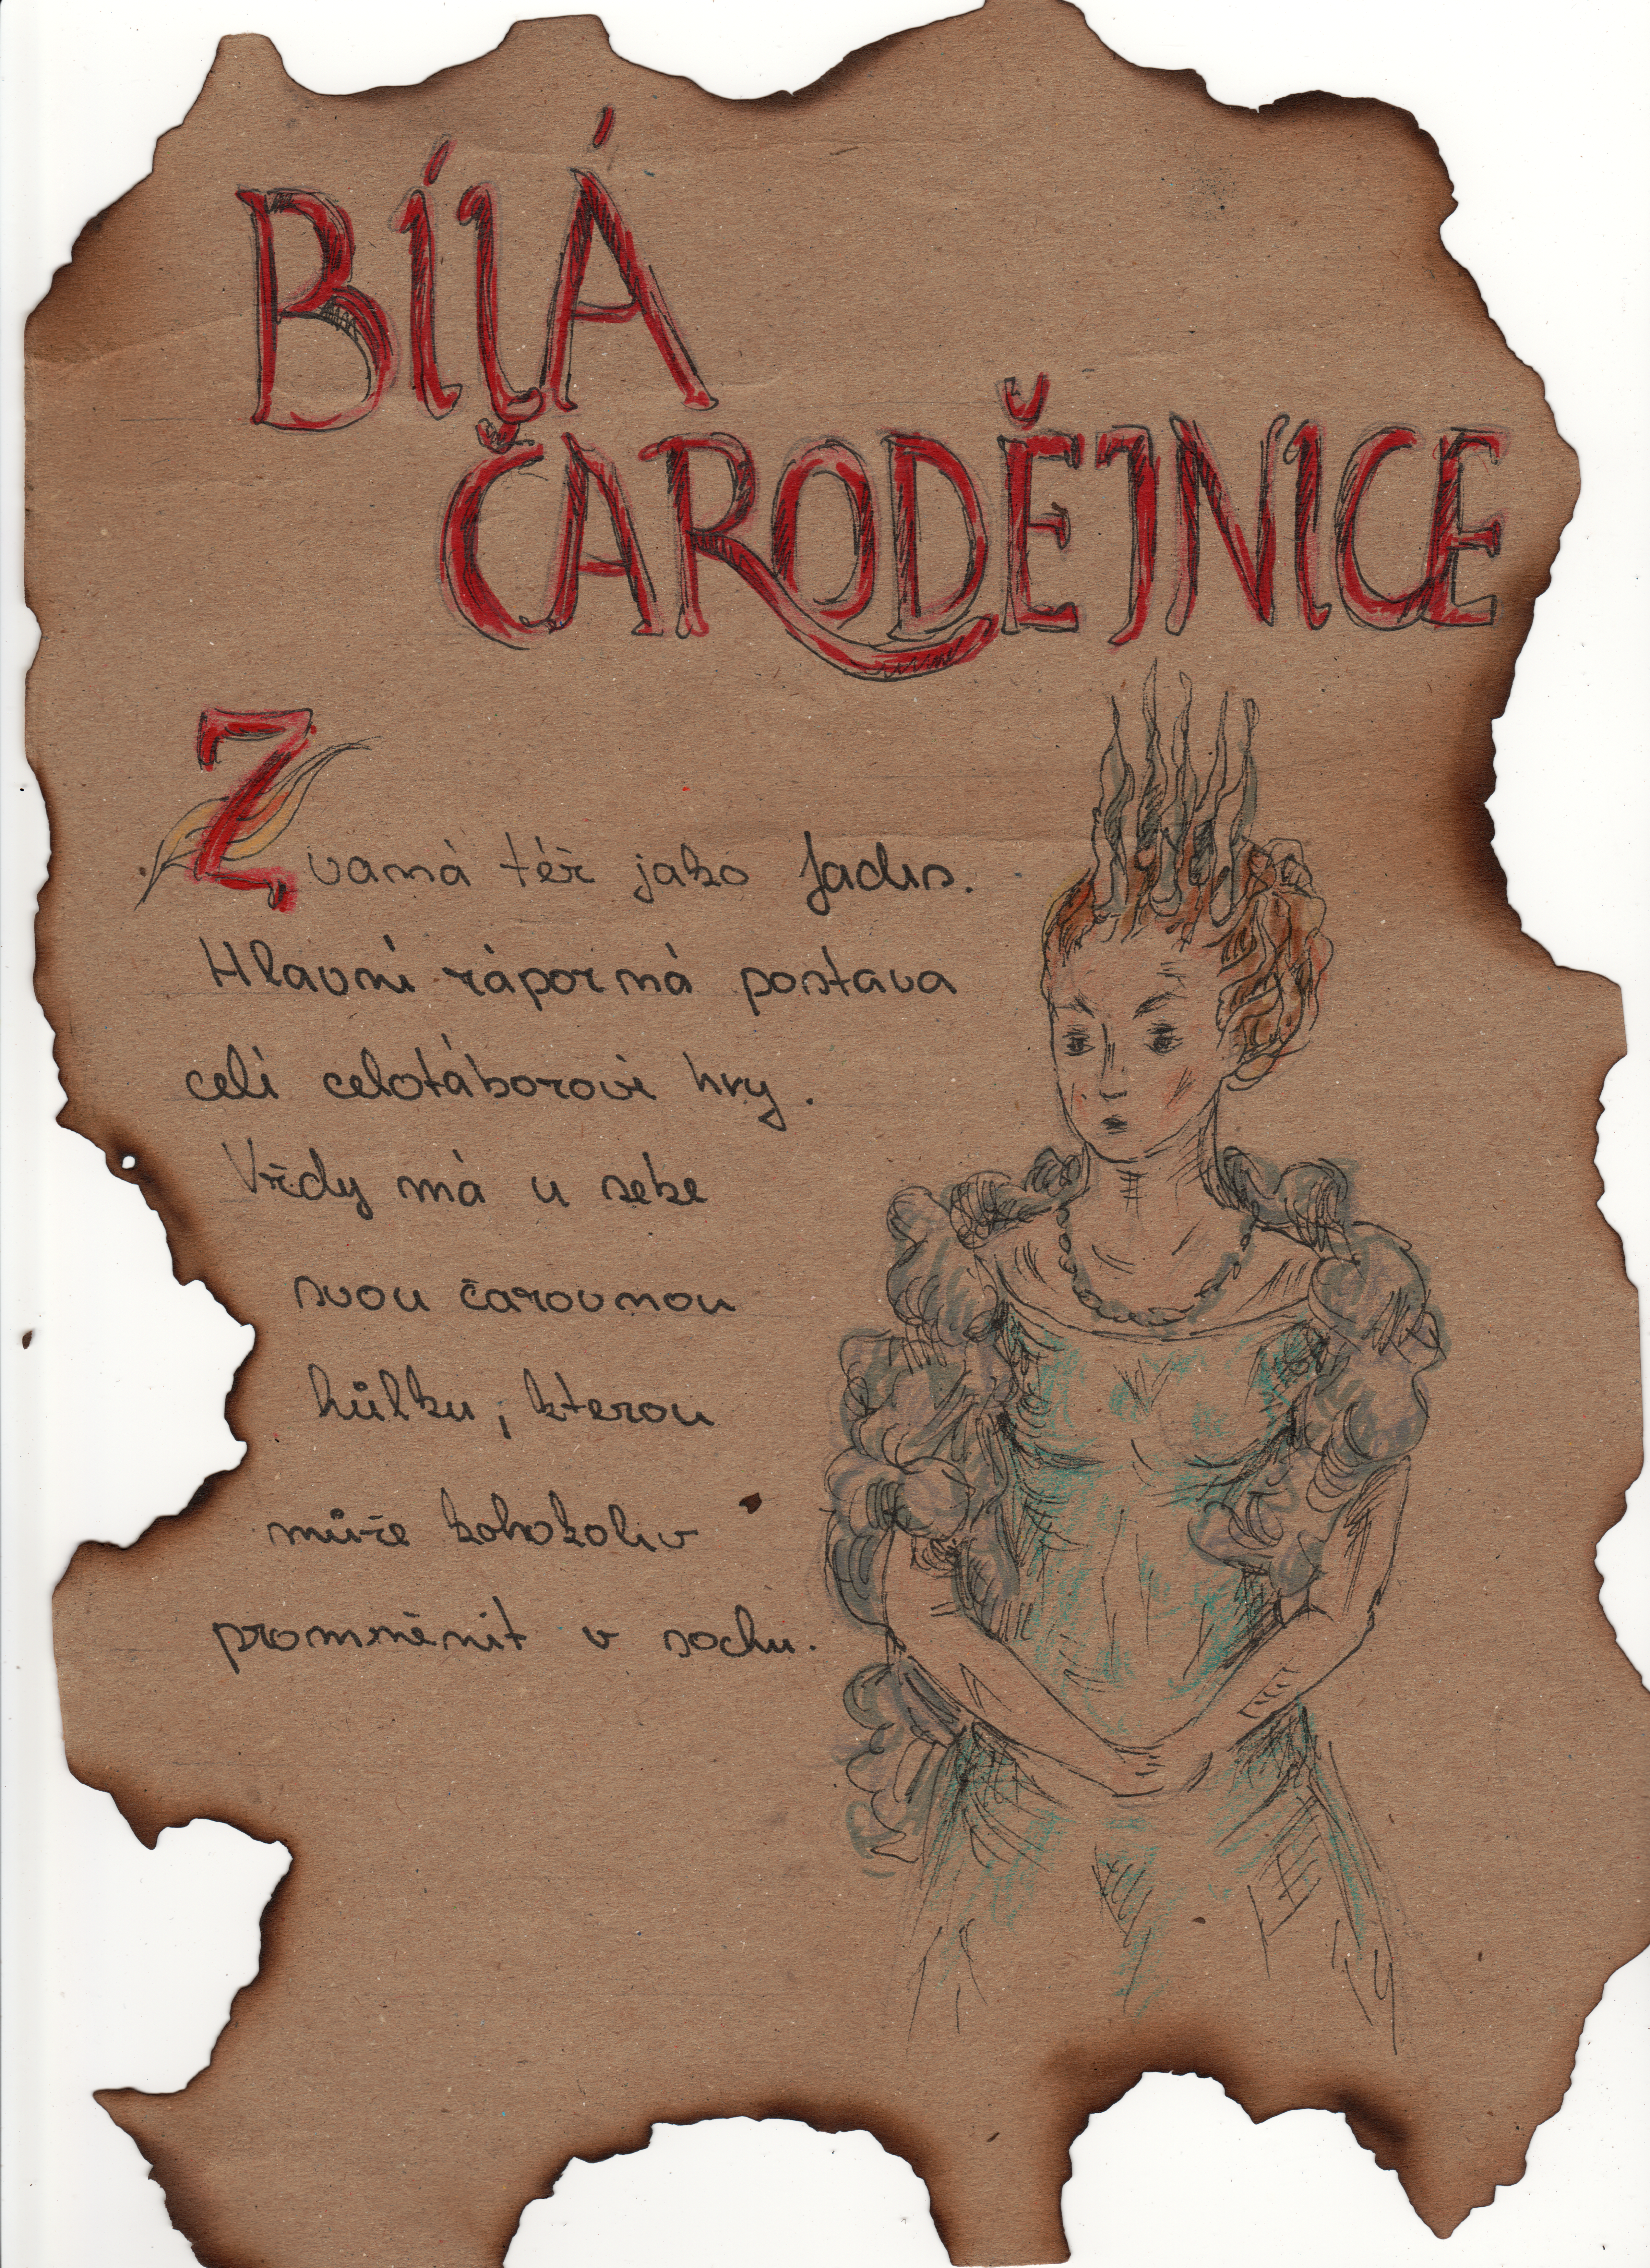 BÍLÁ
ČARODĚJNICE
Zvaná též jako Jadis.
Hlavní záporná postava
celí celotáboroví hry.
Vždy má u sebe
svou čarovnou
hůlku, kterou
může kohokoliv
proměnit v sochu.